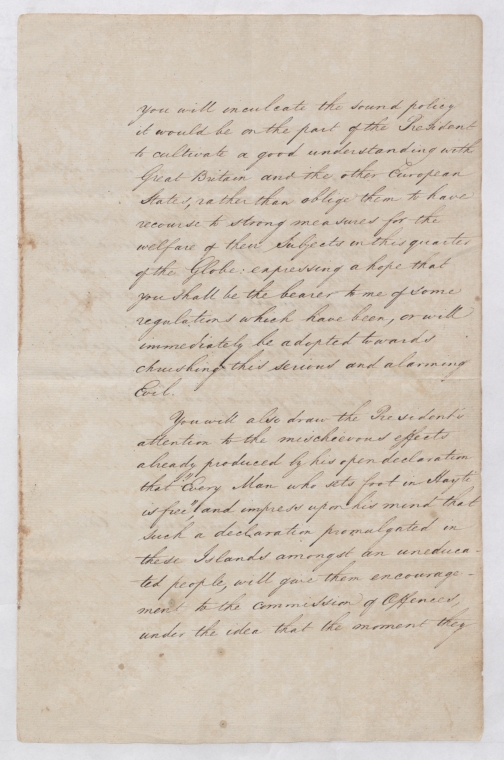 you will inculcate the sound policy
it would be on the part of the President
to cultivate a good understanding with
Great Britain and the other European
States, rather than oblige them to have
recourse to strong measures for the
welfare of their Subjects in this quarter
of the Globe: expressing a hope that
you shall be the bearer to me of some
regulations which have been, or will
immediately be adopted towards
this serious and alarming
Evil.
You will also draw the President's
attention to the mischievous effects
already produced by his open declaration
that "Every Man who sets foot in Hayti
is free" and impress upon his mind that
such a declaration promulgated in
these Islands amongst an uneduca-
-ted people, will give them encourage-
-ment to the commission of Offences,
under the idea that the moment they